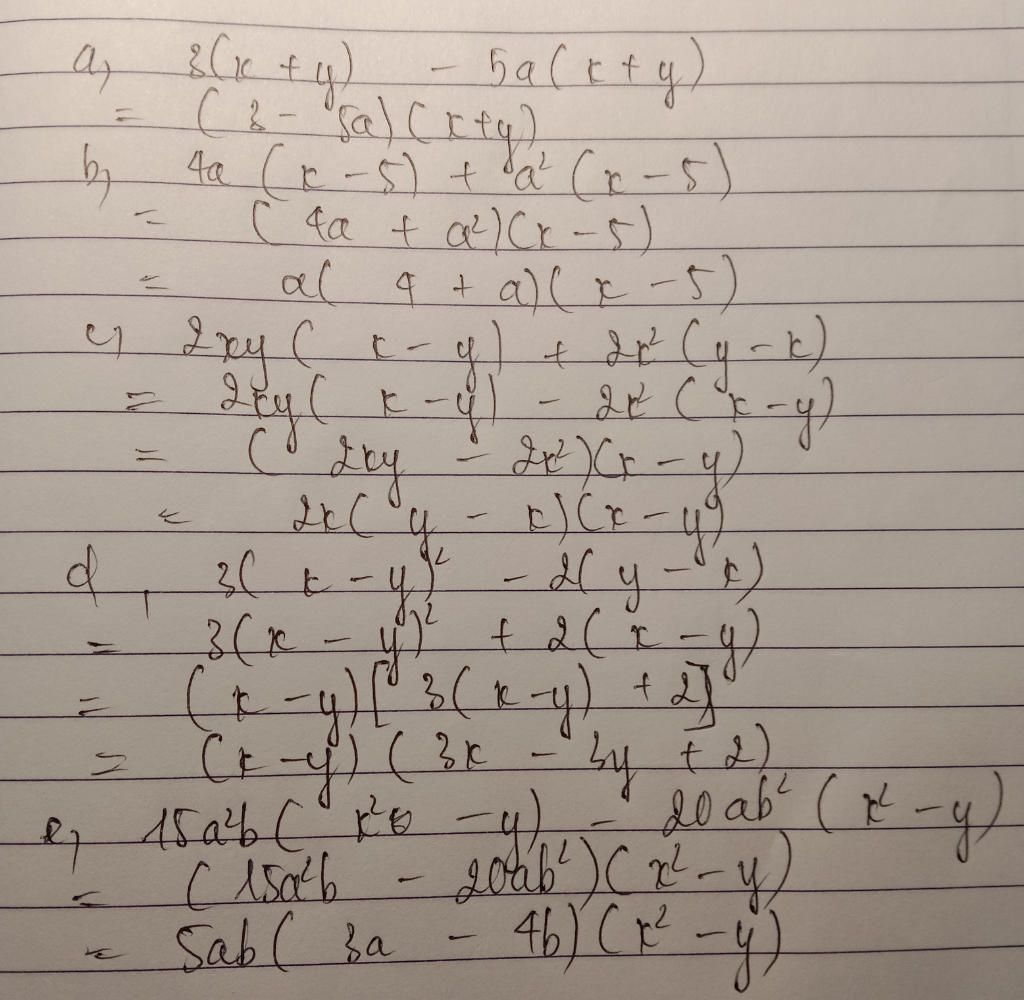 a, 3(x + y) - 5a(x + y)
= (3 - 5a)(x+y)
b, 4a (x - 5) + a² (x - 5)
= (4a + a²)(x - 5)
= a(4 + a)(x - 5)
c, 2xy(x - y) + 2x²(y - x)
= 2xy(x - y) - 2x²(x - y)
= (2xy - 2x²)(x - y)
= 2x(y - x)(x - y)
d, 3(x - y)² - 2(y - x)
= 3(x - y)² + 2(x - y)
= (x - y)[3(x - y) + 2]
= (x - y)(3x - 3y + 2)
e, 15a²b(x² - y) - 20ab²(x² - y)
= (15a²b - 20ab²)(x² - y)
= 5ab(3a - 4b)(x² - y)